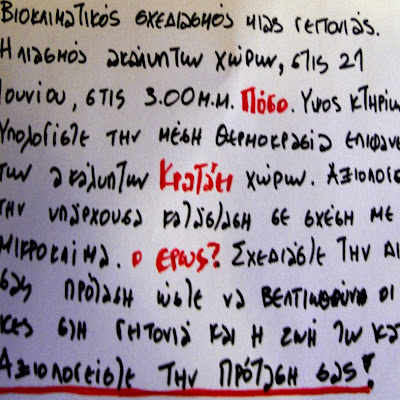 Βιοκλιματικός σχεδιασμός μιας γειτονιάς.
Ηλιασμός ακάλυπτων χώρων, στις 21
Ιουνίου, στις 3.00 μ.μ. Πόσο. Ύψος κτηρίων
Υπολογίστε την μέση θερμοκρασία επιφάνε
των ακάλυπτων Κρατάει χώρων. Αξιολογεισ
την υπάρχουσα κατάσταση σε σχέση με
μικροκλίμα. Ο έρως? Σχεδιάστε την δι
σας πρόταση ώστε να βελτιωθούν οι
κες στη γειτονιά και η ζωή των κατ
Αξιολογείστε την πρόταση σας!